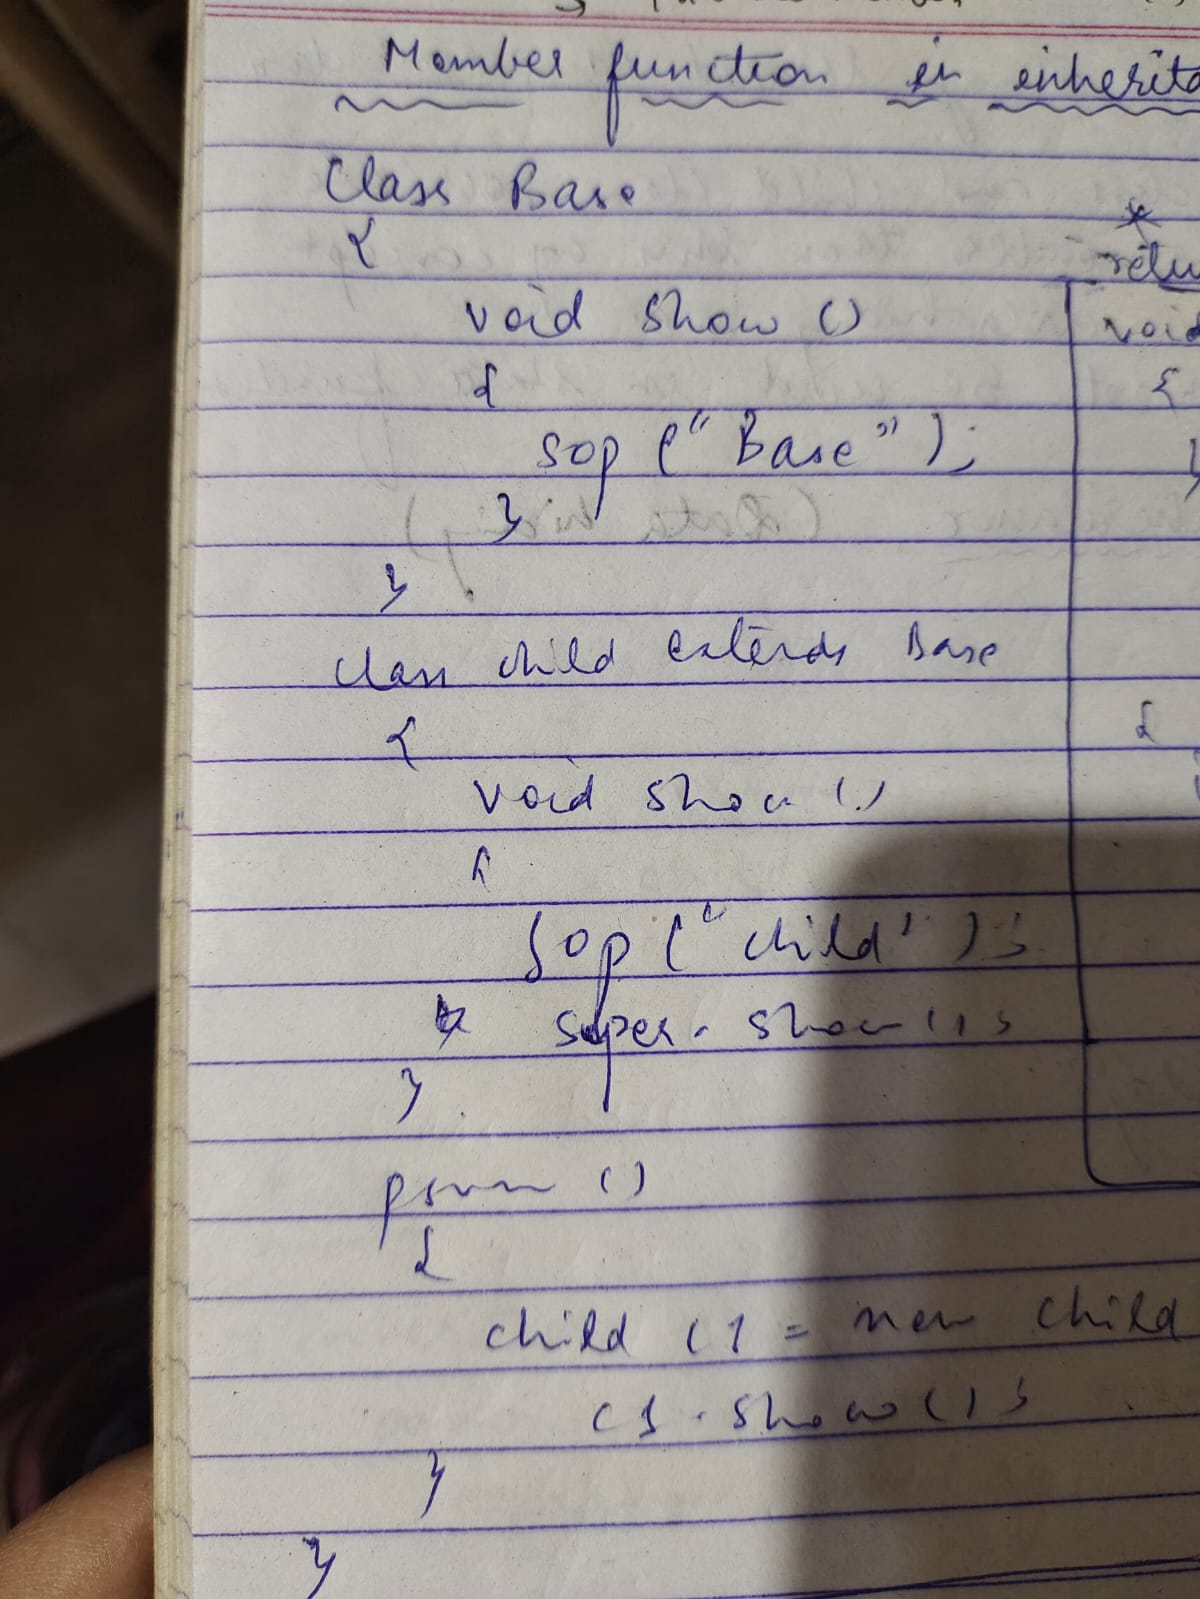 Member function in inherita
Class Base
{
void show ()
{
sop ("Base");
}
}
class child extends Base
{
void show ()
{
sop ("child");
* super. show ();
}
psvm ()
{
child c1 = new child
c1. show ();
}
}
*
retu
void
{
}
{